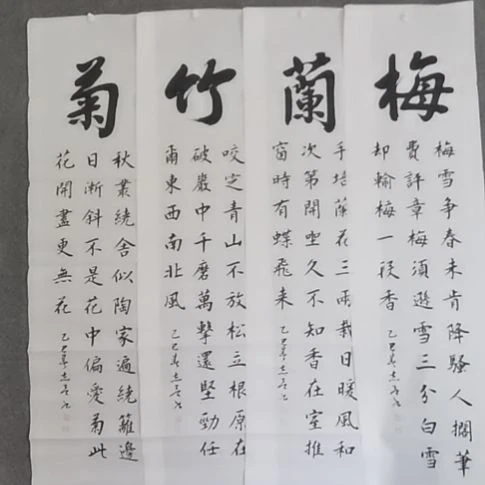 梅
梅雪争春未肯降騷人擱筆
費評章梅須遜雪三分白雪
却輸梅一段香
乙巳
蘭
手培蘭花三兩栽日暖風和
次第開坐久不知香在室推
窗時有蝶飛来
乙巳
竹
咬定青山不放松立根原在
破巖中千磨萬擊還堅勁任
爾東西南北風
乙巳
菊
秋叢繞舍似陶家遍繞籬邊
日漸斜不是花中偏愛菊此
花開盡更無花
乙巳